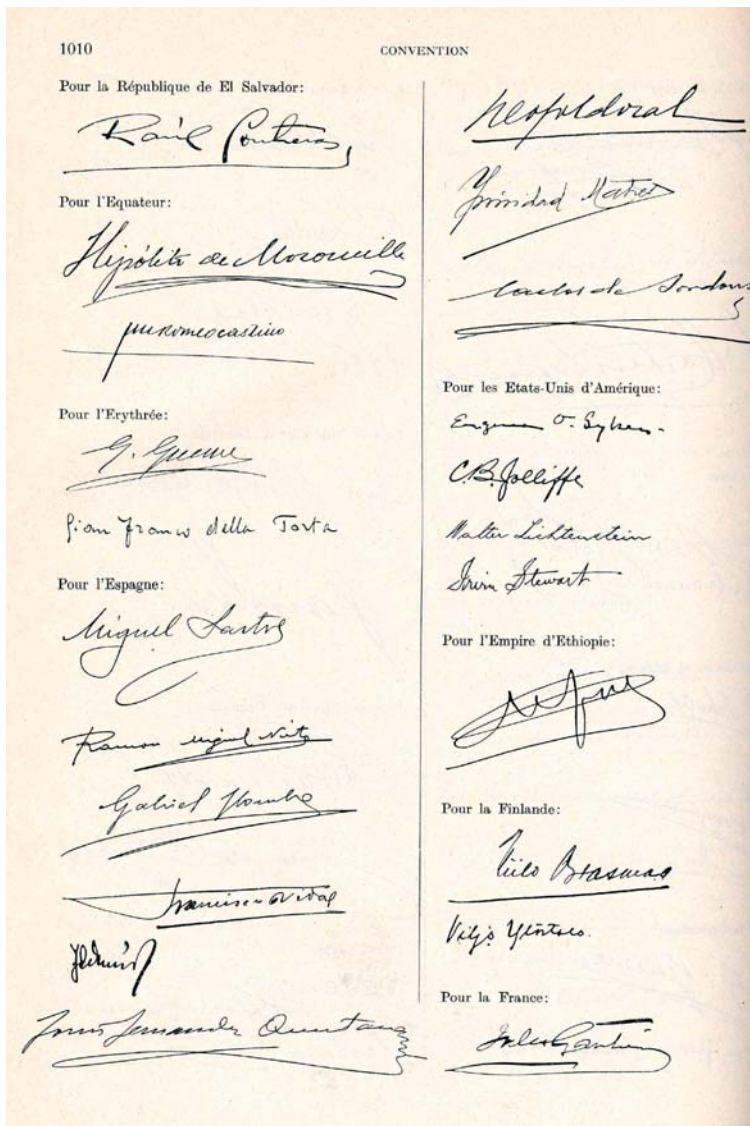 1010
CONVENTION
Pour la République de El Salvador:
Raúl Contreras
Pour l'Equateur:
Hipólito de Mozoncillo
Pour l'Erythrée:
G. Gneme
Gian Franco della Porta
Pour l'Espagne:
Miguel Sastre
Ramon Miguel Nieto
Gabriel Hombre
Francisco Vidal
Fernandez Quintana
Leopoldo Cal
Trinidad Matres
Carlos de Bordons
Pour les Etats-Unis d'Amérique:
Eugene O. Sykes
C.B. Jolliffe
Walter Lichtenstein
Irvin Stewart
Pour l'Empire d'Ethiopie:
Pour la Finlande:
Niilo Orasmaa
Viljo Ylöstalo
Pour la France:
Jules Gautier